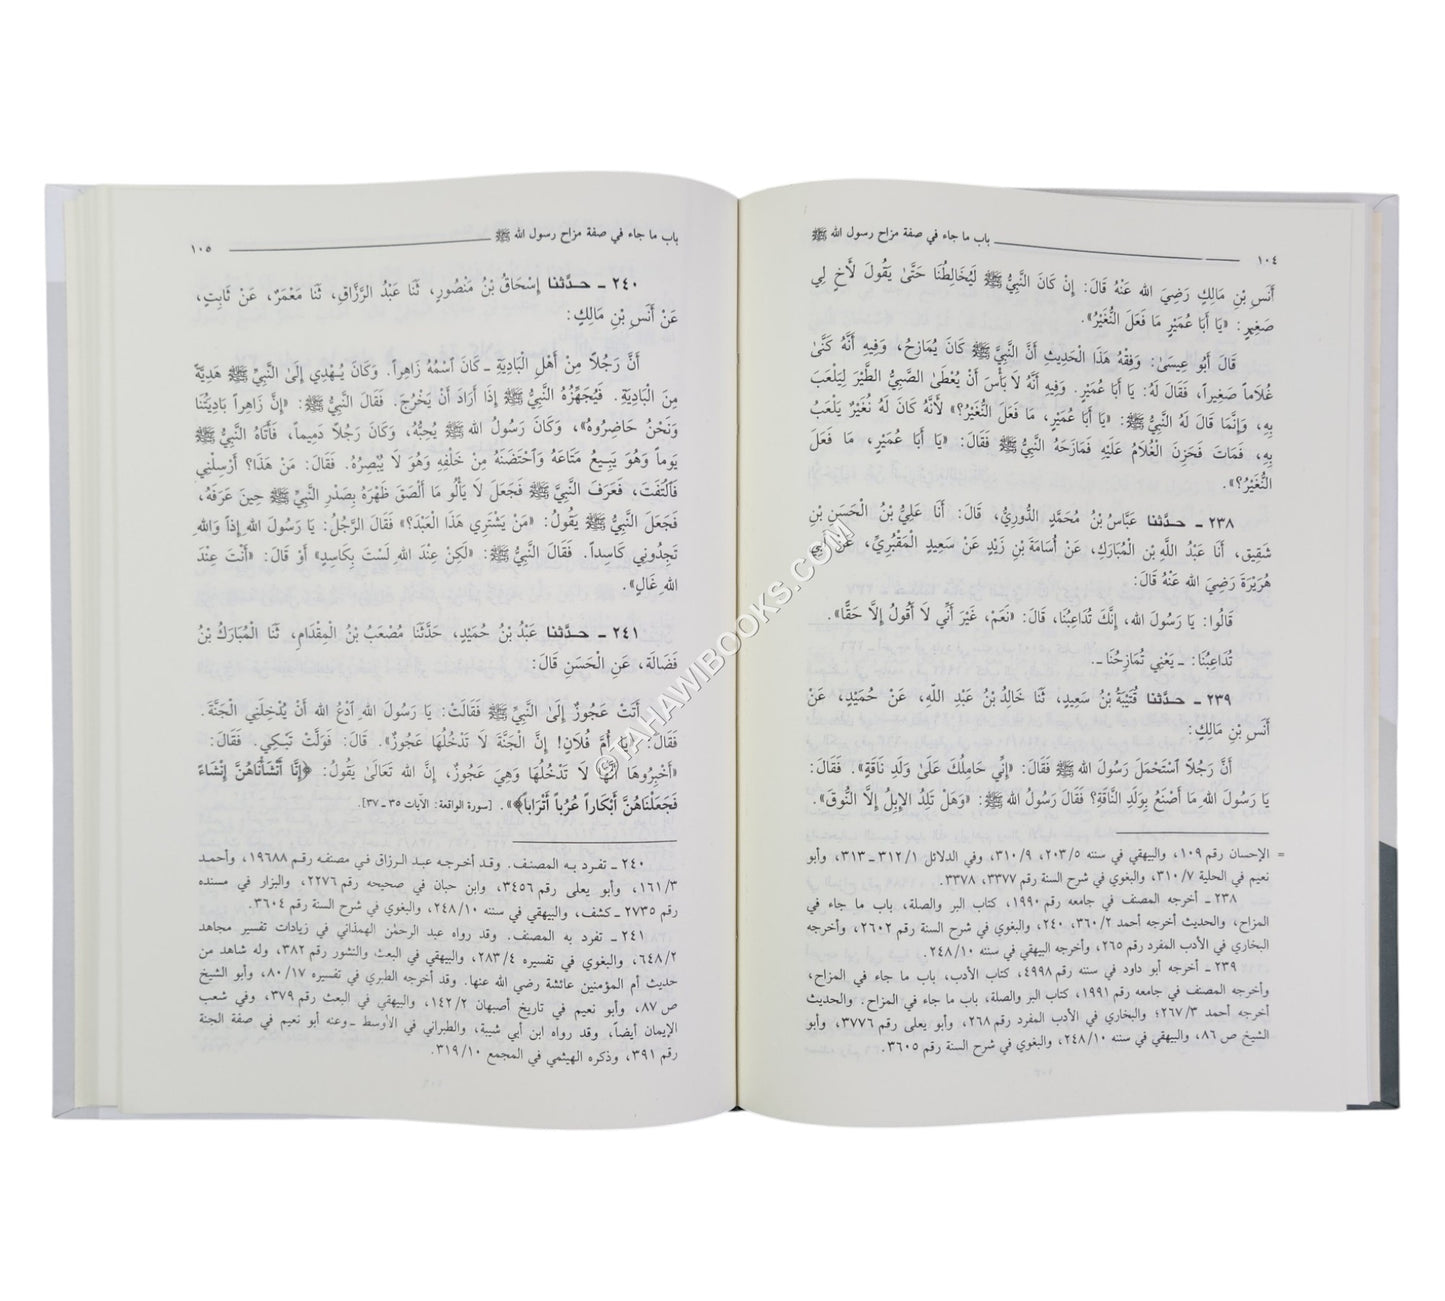 ١٠٤ باب ما جاء في صفة مزاح رسول الله ﷺ
أَنَسِ بْنِ مَالِكٍ رَضِيَ الله عَنْهُ قَالَ: إِنْ كَانَ النَّبِيُّ ﷺ لَيُخَالِطُنَا حَتَّىٰ يَقُولَ لأَخٍ لِي
صَغِيرٍ: «يَا أَبَا عُمَيْرٍ مَا فَعَلَ النُّغَيْرُ؟».
قَالَ أَبُو عِيسَىٰ: وَفِقْهُ هَذَا الْحَدِيثِ أَنَّ النَّبِيَّ ﷺ كَانَ يُمَازِحُ، وَفِيهِ أَنَّهُ كَنَّىٰ
غُلَاماً صَغِيراً، فَقَالَ لَهُ: يَا أَبَا عُمَيْرٍ. وَفِيهِ أَنَّهُ لَا بَأْسَ أَنْ يُعْطَىٰ الصَّبِيُّ الطَّيْرَ لِيَلْعَبَ
بِهِ، وَإِنَّمَا قَالَ لَهُ النَّبِيُّ ﷺ: «يَا أَبَا عُمَيْرٍ، مَا فَعَلَ النُّغَيْرُ؟» لأَنَّهُ كَانَ لَهُ نُغَيْرٌ يَلْعَبُ
بِهِ، فَمَاتَ فَحَزِنَ الْغُلَامُ عَلَيْهِ فَمَازَحَهُ النَّبِيُّ ﷺ فَقَالَ: «يَا أَبَا عُمَيْرٍ، مَا فَعَلَ
النُّغَيْرُ؟».
٢٣٨ ـ حدّثنا عَبَّاسُ بْنُ مُحَمَّدٍ الدُّورِيُّ، قَالَ: أَنَا عَلِيُّ بْنُ الْحَسَنِ بْنِ
شَقِيقٍ، أَنَا عَبْدُ اللَّهِ بْنِ الْمُبَارَكِ، عَنْ أُسَامَةَ بْنِ زَيْدٍ عَنْ سَعِيدٍ الْمَقْبُرِيِّ، عَنْ أَبِي
هُرَيْرَةَ رَضِيَ الله عَنْهُ قَالَ:
قَالُوا: يَا رَسُولَ الله، إِنَّكَ تُدَاعِبُنَا، قَالَ: «نَعَمْ، غَيْرَ أَنِّي لَا أَقُولُ إِلَّا حَقًّا».
تُدَاعِبُنَا: ـ يَعْنِي تُمَازِحُنَا ـ.
٢٣٩ ـ حدّثنا قُتَيْبَةُ بْنُ سَعِيدٍ، ثَنَا خَالِدُ بْنُ عَبْدِ اللَّهِ، عَنْ حُمَيْدٍ، عَنْ
أَنَسِ بْنِ مَالِكٍ:
أَنَّ رَجُلاً اسْتَحْمَلَ رَسُولَ الله ﷺ فَقَالَ: «إِنِّي حَامِلُكَ عَلَىٰ وَلَدِ نَاقَةٍ». فَقَالَ:
يَا رَسُولَ اللهِ مَا أَصْنَعُ بِوَلَدِ النَّاقَةِ؟ فَقَالَ رَسُولُ الله ﷺ: «وَهَلْ تَلِدُ الإِبِلُ إِلَّا النُّوقَ».
= الإحسان رقم ١٠٩، والبيهقي في سننه ٢٠٣/٥، ٣١٠/٩، وفي الدلائل ٣١٢/١ ـ ٣١٣، وأبو
نعيم في الحلية ٣١٠/٧، والبغوي في شرح السنة رقم ٣٣٧٧، ٣٣٧٨.
٢٣٨ ـ أخرجه المصنف في جامعه رقم ١٩٩٠، كتاب البر والصلة، باب ما جاء في
المزاح، والحديث أخرجه أحمد ٣٦٠/٢، ٢٤٠، والبغوي في شرح السنة رقم ٢٦٠٢، وأخرجه
البخاري في الأدب المفرد رقم ٢٦٥، وأخرجه البيهقي في سننه ٢٤٨/١٠.
٢٣٩ ـ أخرجه أبو داود في سننه رقم ٤٩٩٨، كتاب الأدب، باب ما جاء في المزاح،
وأخرجه المصنف في جامعه رقم ١٩٩١، كتاب البر والصلة، باب ما جاء في المزاح. والحديث
أخرجه أحمد ٢٦٧/٣؛ والبخاري في الأدب المفرد رقم ٢٦٨، وأبو يعلى رقم ٣٧٧٦، وأبو
الشيخ ص ٨٦، والبيهقي في سننه ٢٤٨/١٠، والبغوي في شرح السنة رقم ٣٦٠٥.
باب ما جاء في صفة مزاح رسول الله ﷺ ١٠٥
٢٤٠ ـ حدّثنا إِسْحَاقُ بْنُ مَنْصُورٍ، ثَنَا عَبْدُ الرَّزَّاقِ، ثَنَا مَعْمَرٌ، عَنْ ثَابِتٍ،
عَنْ أَنَسِ بْنِ مَالِكٍ:
أَنَّ رَجُلاً مِنْ أَهْلِ الْبَادِيَةِ ـ كَانَ اسْمُهُ زَاهِراً. وَكَانَ يُهْدِي إِلَىٰ النَّبِيِّ ﷺ هَدِيَّةً
مِنَ الْبَادِيَةِ. فَيُجَهِّزُهُ النَّبِيُّ ﷺ إِذَا أَرَادَ أَنْ يَخْرُجَ. فَقَالَ النَّبِيُّ ﷺ: «إِنَّ زَاهِراً بَادِيَتُنَا
وَنَحْنُ حَاضِرُوهُ»، وَكَانَ رَسُولُ الله ﷺ يُحِبُّهُ، وَكَانَ رَجُلاً دَمِيماً، فَأَتَاهُ النَّبِيُّ ﷺ
يَوْماً وَهُوَ يَبِيعُ مَتَاعَهُ وَاحْتَضَنَهُ مِنْ خَلْفِهِ وَهُوَ لَا يُبْصِرُهُ. فَقَالَ: مَنْ هَذَا؟ أَرْسِلْنِي
فَالْتَفَتَ، فَعَرَفَ النَّبِيَّ ﷺ فَجَعَلَ لَا يَأْلُو مَا أَلْصَقَ ظَهْرَهُ بِصَدْرِ النَّبِيِّ ﷺ حِينَ عَرَفَهُ،
فَجَعَلَ النَّبِيُّ ﷺ يَقُولُ: «مَنْ يَشْتَرِي هَذَا الْعَبْدَ؟» فَقَالَ الرَّجُلُ: يَا رَسُولَ اللهِ إِذاً وَاللهِ
تَجِدُونِي كَاسِداً. فَقَالَ النَّبِيُّ ﷺ: «لَكِنْ عِنْدَ اللهِ لَسْتَ بِكَاسِدٍ» أَوْ قَالَ: «أَنْتَ عِنْدَ
اللهِ غَالٍ».
٢٤١ ـ حدّثنا عَبْدُ بْنُ حُمَيْدٍ، حَدَّثَنَا مُصْعَبُ بْنُ الْمِقْدَامِ، ثَنَا الْمُبَارَكُ بْنُ
فَضَالَةَ، عَنِ الْحَسَنِ قَالَ:
أَتَتْ عَجُوزٌ إِلَىٰ النَّبِيِّ ﷺ فَقَالَتْ: يَا رَسُولَ اللهِ ادْعُ الله أَنْ يُدْخِلَنِي الْجَنَّةَ.
فَقَالَ: «يَا أُمَّ فُلَانٍ! إِنَّ الْجَنَّةَ لَا تَدْخُلُهَا عَجُوزٌ». قَالَ: فَوَلَّتْ تَبْكِي. فَقَالَ:
«أَخْبِرُوهَا أَنَّهَا لَا تَدْخُلُهَا وَهِيَ عَجُوزٌ، إِنَّ الله تَعَالَىٰ يَقُولُ: ﴿إِنَّا أَنْشَأْنَاهُنَّ إِنْشَاءً
فَجَعَلْنَاهُنَّ أَبْكَاراً عُرُباً أَتْرَاباً﴾». [سورة الواقعة: الآيات ٣٥ ـ ٣٧].
٢٤٠ ـ تفرد به المصنف. وقد أخرجه عبد الرزاق في مصنفه رقم ١٩٦٨٨، وأحمد
١٦١/٣، وأبو يعلى رقم ٣٤٥٦، وابن حبان في صحيحه رقم ٢٢٧٦، والبزار في مسنده
رقم ٢٧٣٥ ـ كشف، والبيهقي في سننه ٢٤٨/١٠، والبغوي في شرح السنة رقم ٣٦٠٤.
٢٤١ ـ تفرد به المصنف. وقد رواه عبد الرحمٰن الهمذاني في زيادات تفسير مجاهد
٦٤٨/٢، والبغوي في تفسيره ٢٨٣/٤، والبيهقي في البعث والنشور رقم ٣٨٢، وله شاهد من
حديث أم المؤمنين عائشة رضي الله عنها. وقد أخرجه الطبري في تفسيره ٨٠/١٧، وأبو الشيخ
ص ٨٧، وأبو نعيم في تاريخ أصبهان ١٤٢/٢، والبيهقي في البعث رقم ٣٧٩، وفي شعب
الإيمان أيضاً، وقد رواه ابن أبي شيبة، والطبراني في الأوسط ـ وعنه أبو نعيم في صفة الجنة
رقم ٣٩١، وذكره الهيثمي في المجمع ٣١٩/١٠.
©TAHAWIBOOKS.COM